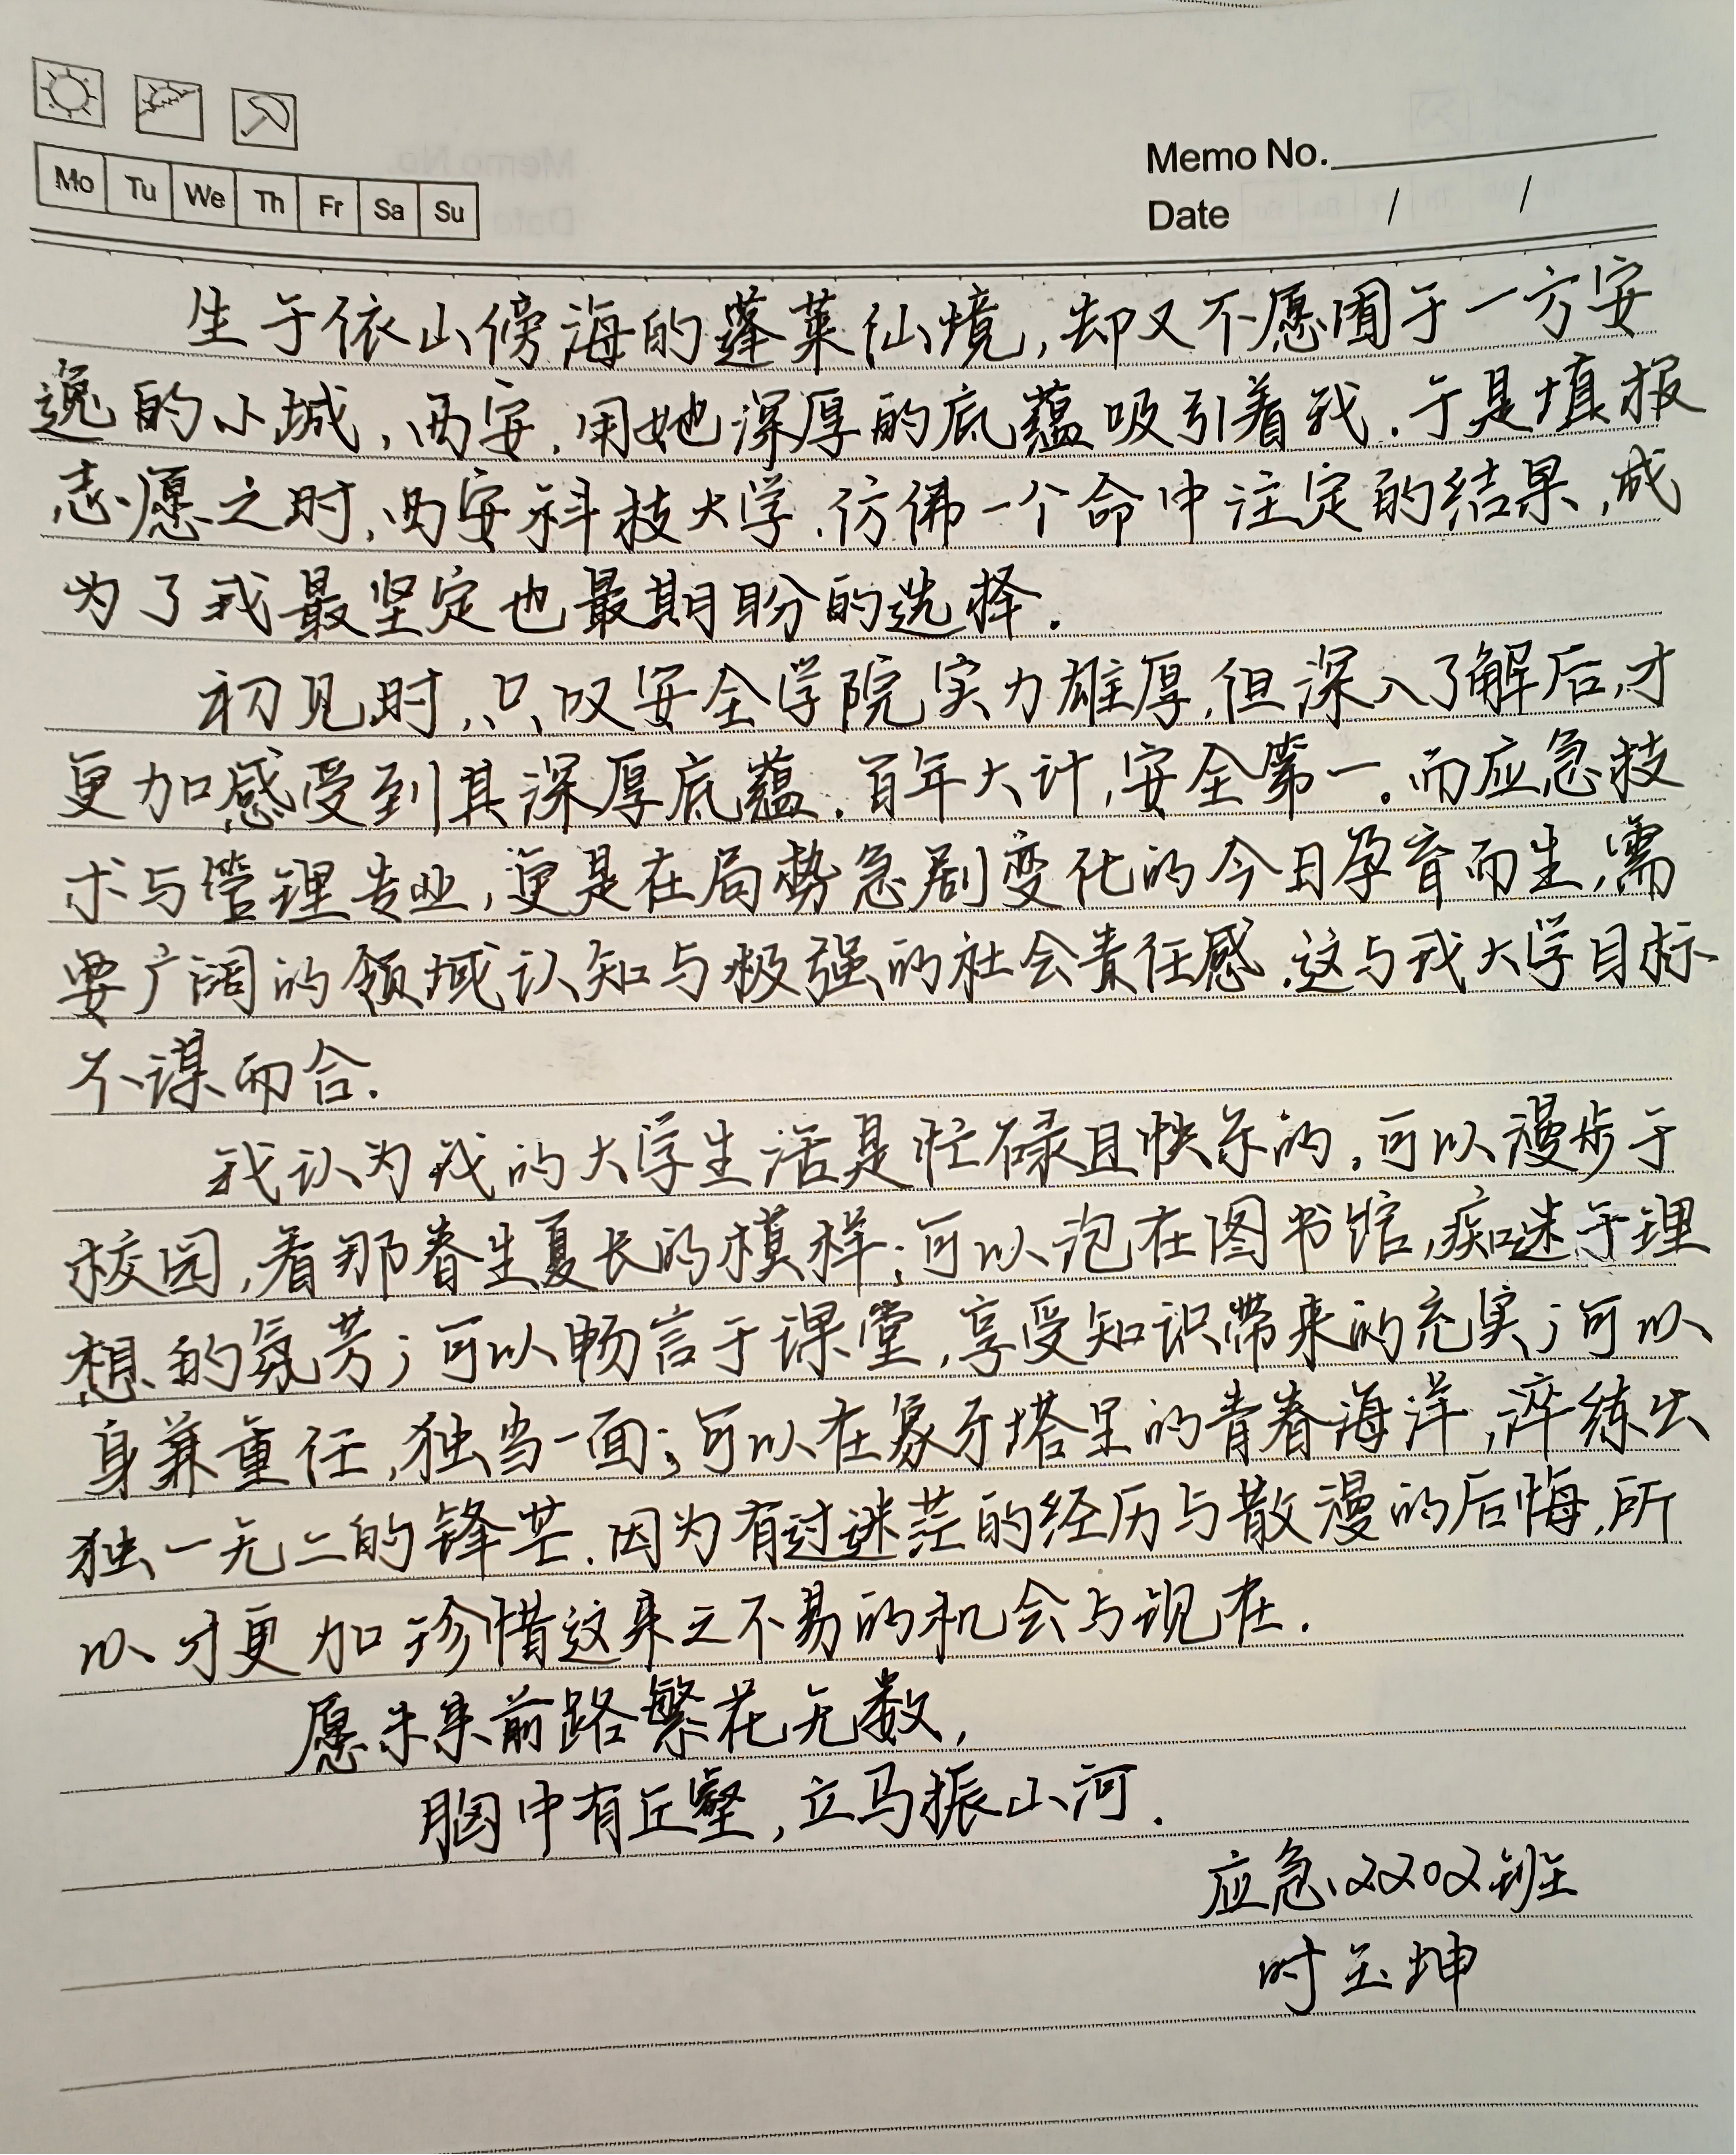 Mo Tu We Th Fr Sa Su
Memo No.
Date / /
生于依山傍海的蓬莱仙境,却又不愿囿于一方安
逸的小城,西安,用她深厚的底蕴吸引着我.于是填报
志愿之时,西安科技大学,仿佛一个命中注定的结果,成
为了我最坚定也最期盼的选择.
初见时,只叹安全学院实力雄厚,但深入了解后,才
更加感受到其深厚底蕴.百年大计,安全第一。而应急技
术与管理专业,更是在局势急剧变化的今日孕育而生,需
要广阔的领域认知与极强的社会责任感.这与我大学目标
不谋而合.
我认为我的大学生活是忙碌且快乐的.可以漫步于
校园,看那春生夏长的模样;可以泡在图书馆,痴迷于理
想的氛芳;可以畅言于课堂,享受知识带来的充实;可以
身兼重任,独当一面;可以在象牙塔里的青春海洋,淬练出
独一无二的锋芒.因为有过迷茫的经历与散漫的后悔,所
以才更加珍惜这来之不易的机会与现在.
愿未来前路繁花无数,
胸中有丘壑,立马振山河.
应急2202班
时玉坤